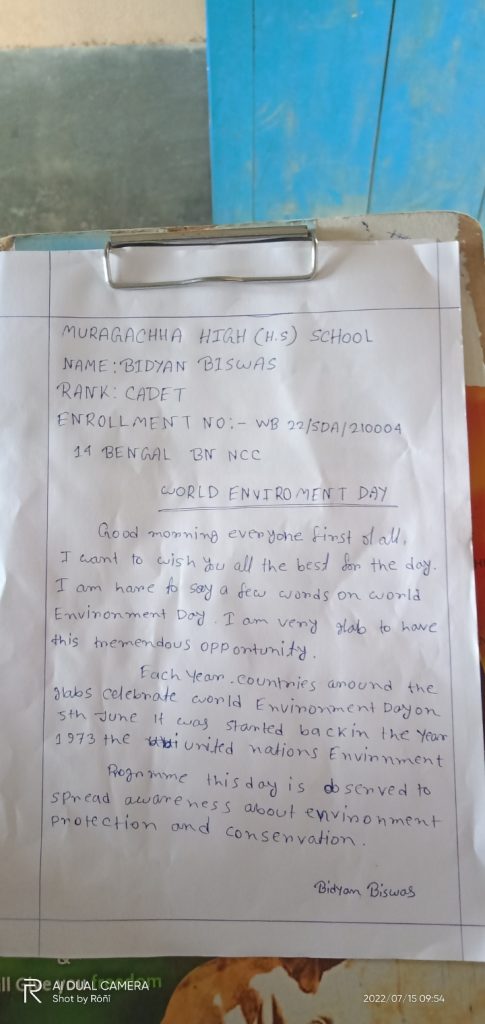 MURAGACHHA HIGH (H.S) SCHOOL
NAME: BIDYAN BISWAS
RANK: CADET
ENROLLMENT NO:- WB 22/SDA/210004
14 BENGAL BN NCC
WORLD ENVIROMENT DAY
Good morning everyone first of all,
I want to wish you all the best for the day.
I am hare to say a few words on world
Environment Day. I am very glab to have
this tremendous opportunity.
Each Year. countries around the
glabs celebrate world Environment Day on
5th June It was started back in the Year
1973 the united nations Envirnment
Programme this day is observed to
spread awareness about environment
protection and conservation.
Bidyan Biswas
&
ll Give you freedom
AI DUAL CAMERA
Shot by Röñï
2022/07/15 09:54